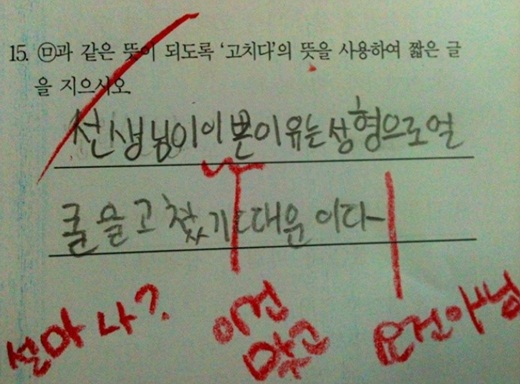 15. ㉤과 같은 뜻이 되도록 '고치다'의 뜻을 사용하여 짧은 글
을 지으시오
선생님이 이쁜 이유는 성형으로 얼
굴을 고쳤기 때문이다
설마 나? 이건 맞고 요건 아님